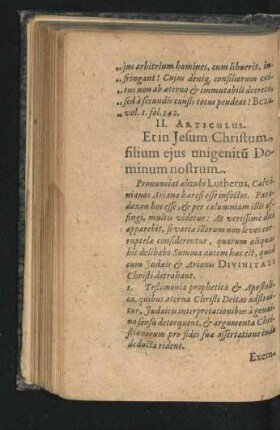 „jus arbitrium homines, cum libuerit, in-
„fringant! Cujus deniq, consiliorum exi-
„tus non ab æterno & immutabili decreto,
„sed à secundis causis totus pendeat! Beza
vol. 1. fol. 342.
II. ARTICULUS.
Et in Jesum Christum,
filium ejus unigenitũ Do-
minum nostrum.
Pronunciat alicubi Lutherus, Calvi-
nianos Ariana hæresi esse infectos. Para-
doxon hoc esse, & per calumniam illis af-
fingi, multis videtur: At verissimè dict
apparebit, si varia illorum non leves cor-
ruptelæ considerentur, quarum aliquas
hic delibabo Summa autem hæc est, quod
cum Judæis & Arianis DIVINITATI
Christi detrahant.
1. Testimonia prophetica & Apostoli-
ca, quibus æterna Christi Deitas adstrui-
tur, Judaicis interpretationibus à genui-
no sensu detorquent, & argumenta Chri-
stianorum pro fidei suæ assertatione inde
deducta rident.
Exem-